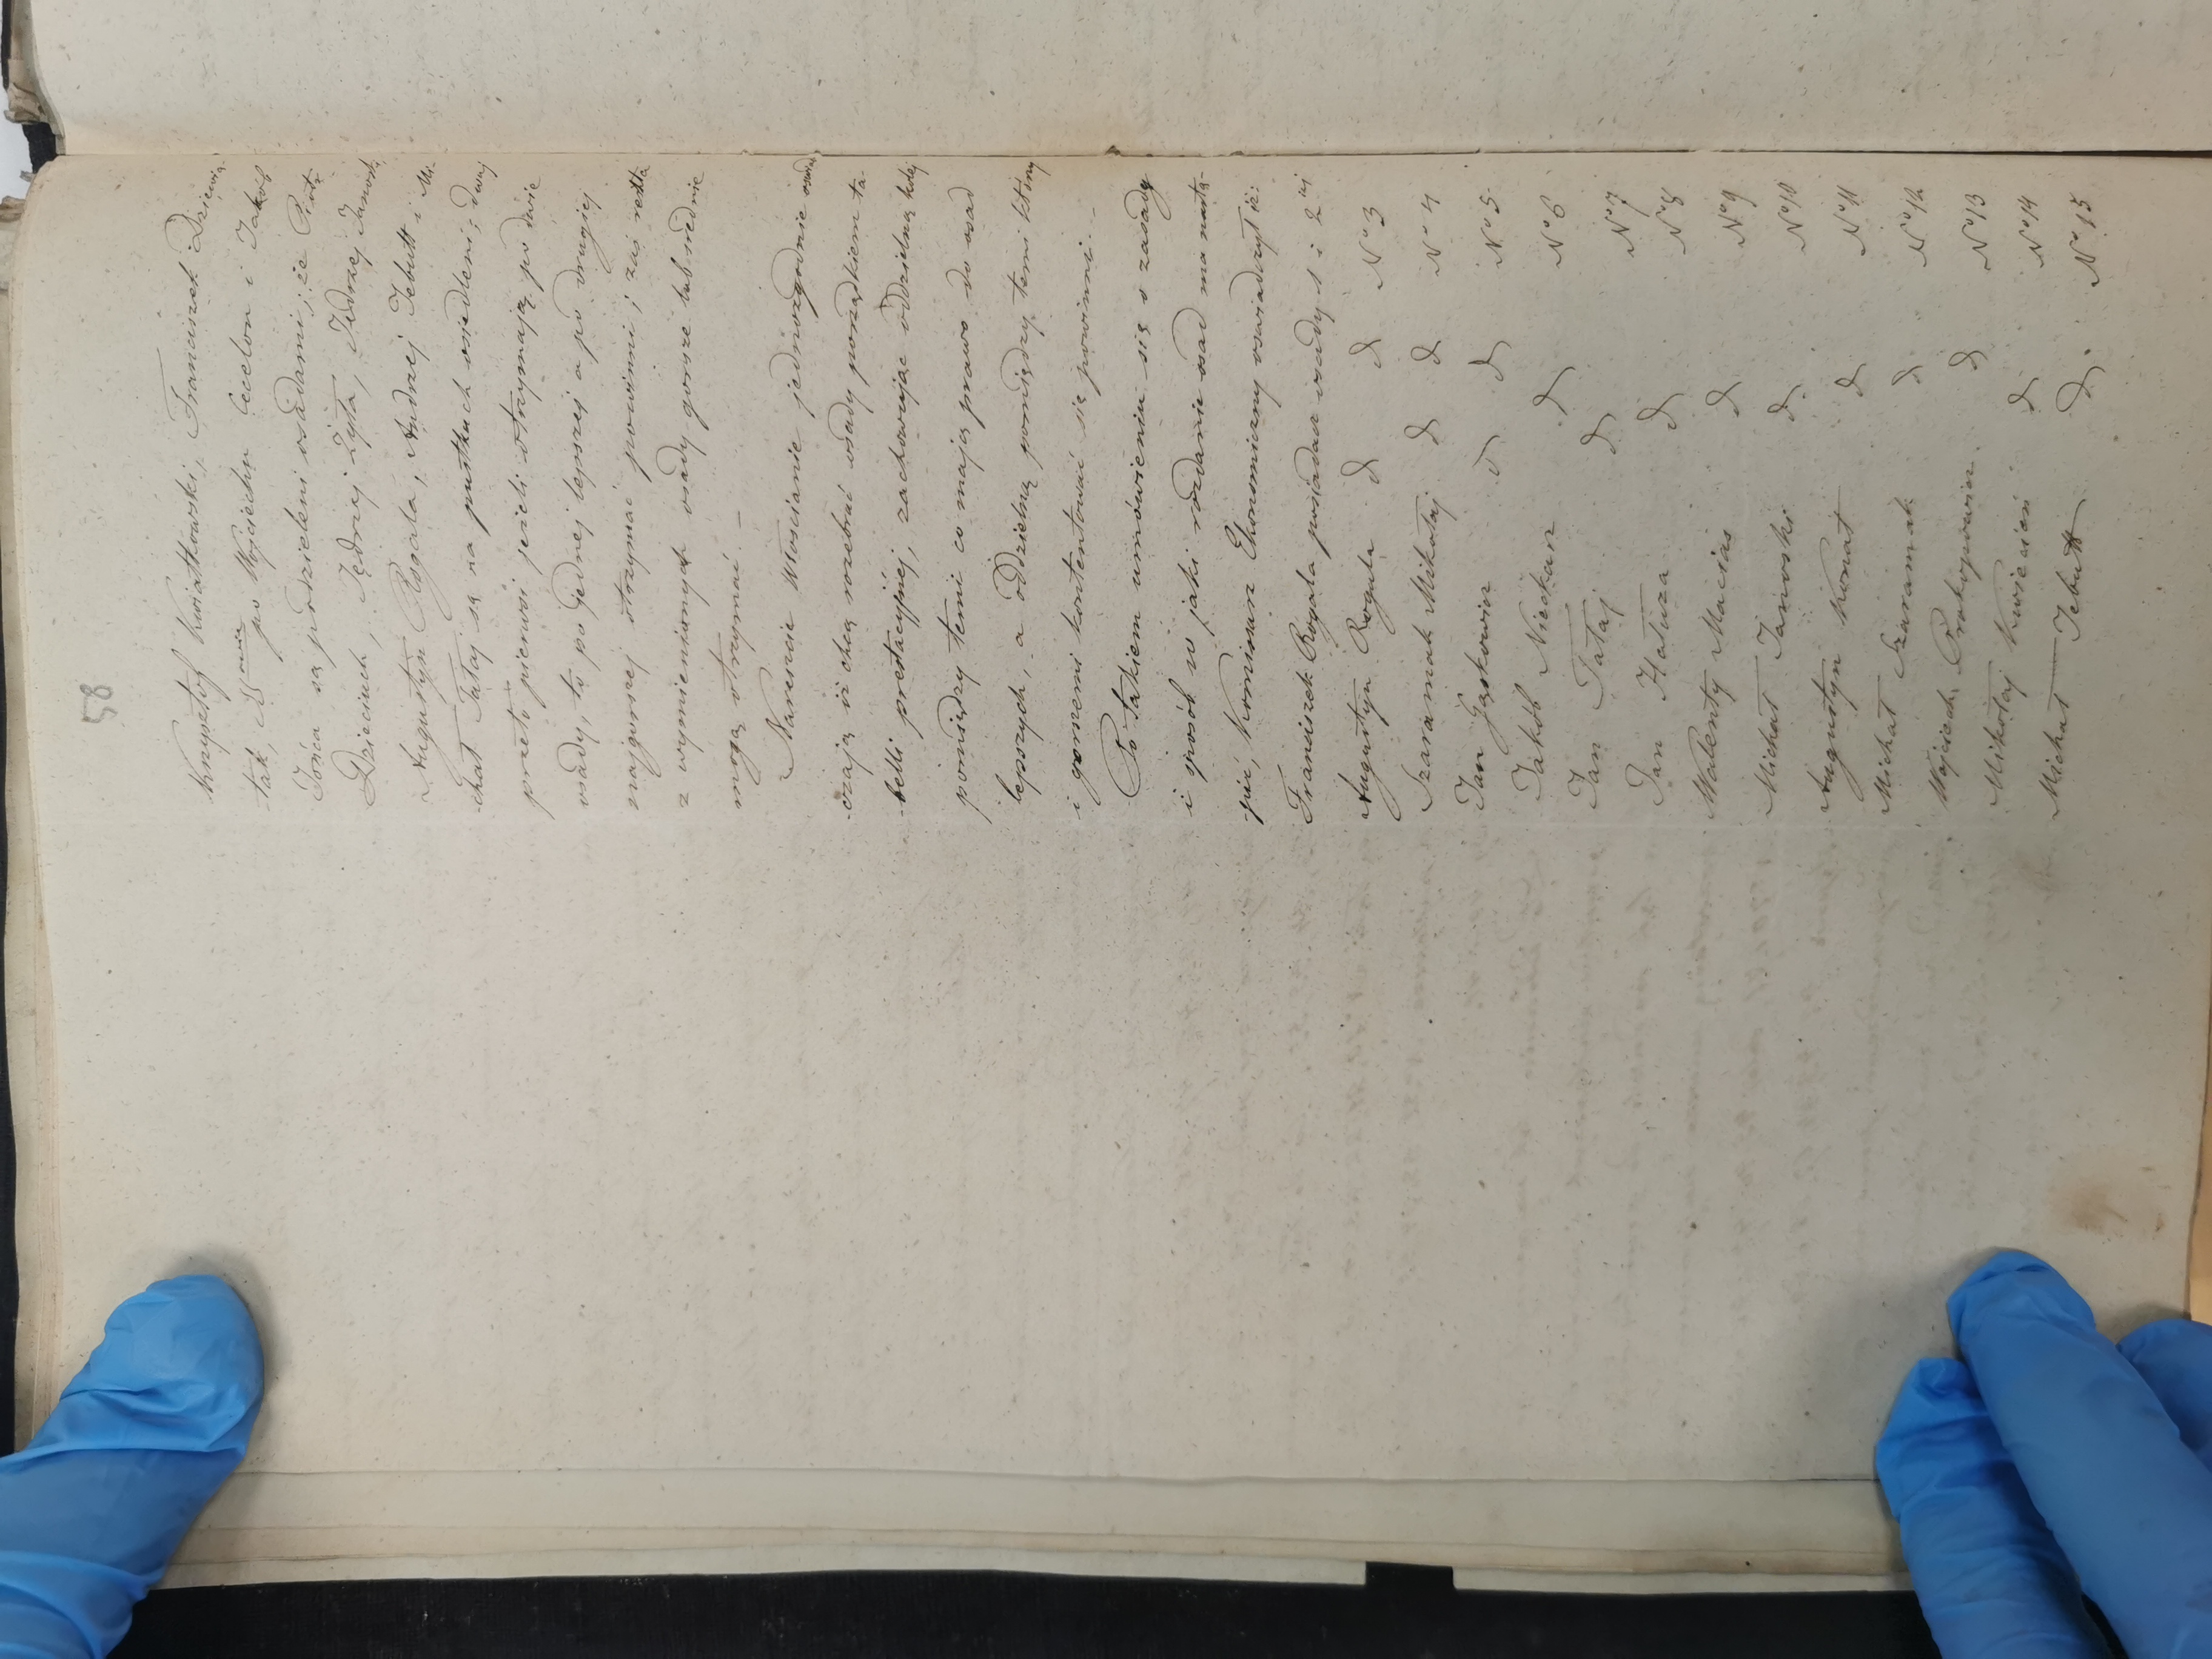 58
Krzysztof Kwiatkowski, Franciszek Dzięcią-
tak, N 15 po Wojciechu Cecelon i Jakób
Jońca są podzieleni osadami; że Piotr
Dzieciuch, Jędrzej Zyta, Jędrzej Janosik
Augustyn Rogala, Andrzej Jebutt i Mi-
chał Tataj są na pustkach osiedleni; dwaj
przeto pierwsi jeżeli otrzymają po dwie
osady, to po jednej lepszej a po drugiej
najgorszej otrzymać powinni; zaś reszta
z wymienionych osady gorsze lub średnie
mogą otrzymać. —
Nareszcie Włościanie jednozgodnie oświad-
czają iż chcą rozebrać osady porządkiem ta-
belli prestacyjnej, zachowując oddzielną kolej
pomiędzy temi co mają prawo do osad
lepszych, a oddzielną pomiędzy temi którzy
i gorszemi kontentować się powinni. —
Po takiem umówieniu się o zasady
i sposób w jaki rozdanie osad ma nastą-
pić, Kommissarz Ekonomiczny oświadczył iż:
Franciszek Rogala posiadać osady 1 i 2
Augustyn Rogala d d N° 3
Szaramak Mikołaj d d N° 4
Jan Gąskowicz d d N° 5
Jakób Nieckarz d N° 6
Jan Tataj d N° 7
Jan Hałuza d N° 8
Walenty Macias d N° 9
Michał Janoski d N° 10
Augustyn Konat d N° 11
Michał Szaramak d N° 12
Wojciech Prokopowicz d N° 13
Mikołaj Kwiecień d N° 14
Michał Jebutt d N° 15